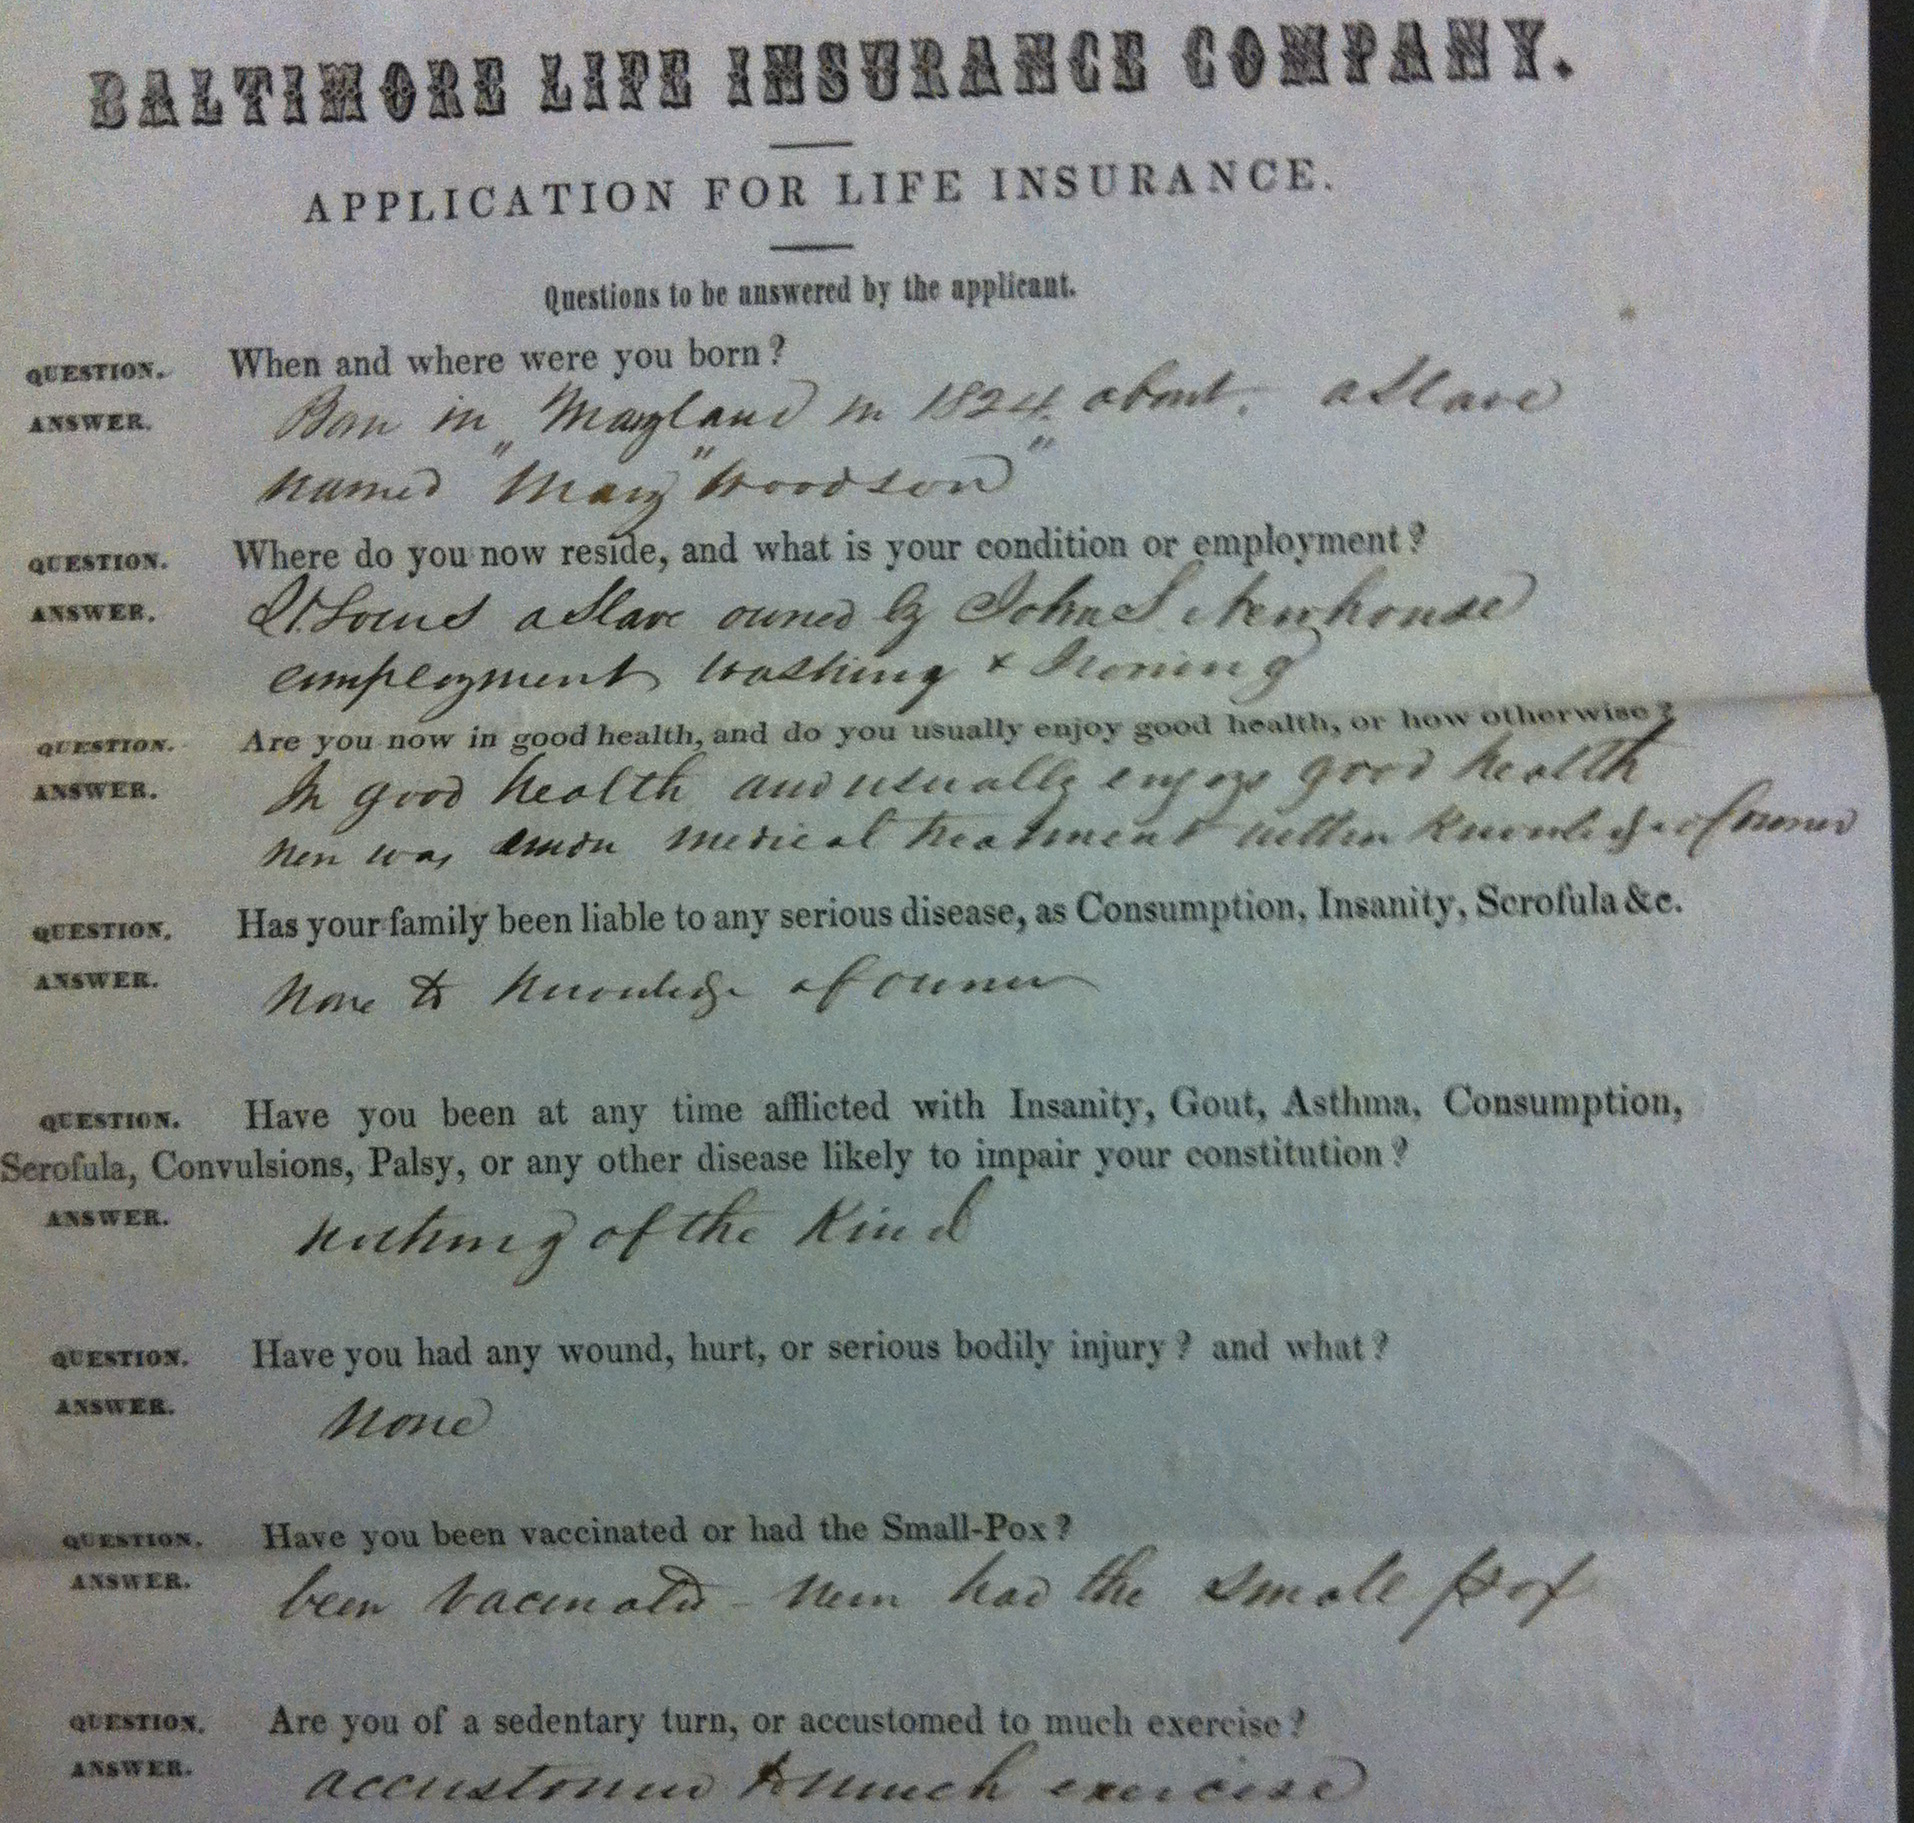 BALTIMORE LIFE INSURANCE COMPANY.
APPLICATION FOR LIFE INSURANCE.
Questions to be answered by the applicant.
QUESTION. When and where were you born?
ANSWER. Born in Maryland in 1824 about. a Slave
named "Mary" Woodson"
QUESTION. Where do you now reside, and what is your condition or employment?
ANSWER. St. Louis a Slave owned by John S. Newhouse
employment washing & Ironing
QUESTION. Are you now in good health, and do you usually enjoy good health, or how otherwise?
ANSWER. In good health and usually enjoys good health
never was under medical treatment within knowledge of owner
QUESTION. Has your family been liable to any serious disease, as Consumption, Insanity, Scrofula &c.
ANSWER. None to knowledge of owner
QUESTION. Have you been at any time afflicted with Insanity, Gout, Asthma, Consumption,
Scrofula, Convulsions, Palsy, or any other disease likely to impair your constitution?
ANSWER. nothing of the Kind
QUESTION. Have you had any wound, hurt, or serious bodily injury? and what?
ANSWER. None
QUESTION. Have you been vaccinated or had the Small-Pox?
ANSWER. been vacinated - never had the small pox
QUESTION. Are you of a sedentary turn, or accustomed to much exercise?
ANSWER. accustomed to much exercise